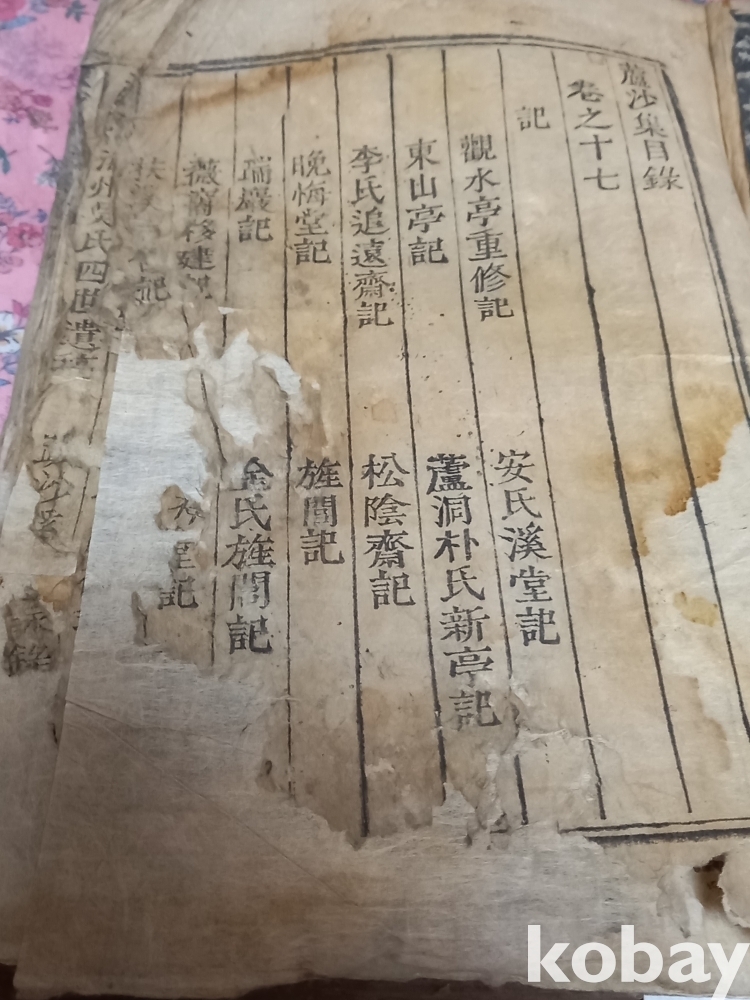 蘆沙集目錄
卷之十七
記
觀水亭重修記
安氏溪堂記
東山亭記
蘆洞朴氏新亭記
李氏追遠齋記
松陰齋記
晩悔堂記
旌閭記
瑞巖記
金氏旌閭記
移建記
記
記
州 氏四世遺
kobay